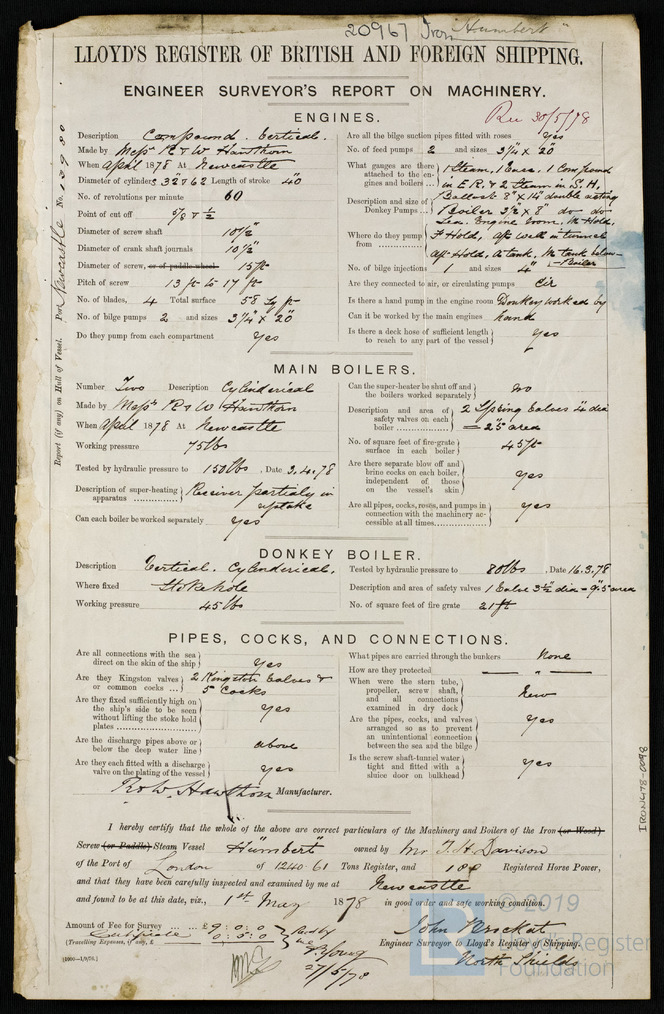 20967 Iron "Humbert"
LLOYD'S REGISTER OF BRITISH AND FOREIGN SHIPPING.
ENGINEER SURVEYOR'S REPORT ON MACHINERY.
Rec 30/5/78
ENGINES.
Description Compound. Vertical.
Made by Messrs R & W Hawthorn
When April 1878 At Newcastle
Diameter of cylinders 32" & 62 Length of stroke 40
No. of revolutions per minute 60
Point of cut off 5/8 & 1/2
Diameter of screw shaft 10 1/2"
Diameter of crank shaft journals 10 1/2"
Diameter of screw, or of paddle-wheel 15 ft
Pitch of screw 13 ft to 17 ft
No. of blades, 4 Total surface 58 Sq ft
No. of bilge pumps 2 and sizes 3 1/4" x 20"
Do they pump from each compartment Yes
Are all the bilge suction pipes fitted with roses Yes
No. of feed pumps 2 and sizes 3 1/4 x 20"
What gauges are there attached to the engines and boilers 1 Steam, 1 Vac, 1 Compound
in E.R. & 2 Steam in S.H.
Description and size of Donkey Pumps Ballast 8" x 14" double acting
Boiler 3 1/2 x 8" do do
Where do they pump from Sea. Engine Room, M. Hold,
F Hold, aft Well in tunnel
aft Hold, A tank, M tank below Boiler
No. of bilge injections 1 and sizes 4"
Are they connected to air, or circulating pumps Cir
Is there a hand pump in the engine room Donkey worked by
Can it be worked by the main engines hand
Is there a deck hose of sufficient length to reach to any part of the vessel Yes
MAIN BOILERS.
Number Two Description Cylinderical
Made by Messrs R & W Hawthorn
When April 1878 At Newcastle
Working pressure 75 lbs
Tested by hydraulic pressure to 150 lbs. Date 3.4.78
Description of super-heating apparatus Receiver partialy in
uptake
Can each boiler be worked separately Yes
Can the super-heater be shut off and the boilers worked separately no
Description and area of safety valves on each boiler 2 Spring Valves 4" dia
= 25" area
No. of square feet of fire-grate surface in each boiler 45 ft
Are there separate blow off and brine cocks on each boiler, independent of those on the vessel's skin Yes
Are all pipes, cocks, roses, and pumps in connection with the machinery accessible at all times Yes
DONKEY BOILER.
Description Vertical. Cylinderical.
Where fixed Stokehole
Working pressure 45 lbs
Tested by hydraulic pressure to 80 lbs. Date 16.3.78
Description and area of safety valves 1 Valve 3 1/2" dia = 9".5 area
No. of square feet of fire grate 21 ft
PIPES, COCKS, AND CONNECTIONS.
Are all connections with the sea direct on the skin of the ship Yes
Are they Kingston valves or common cocks 2 Kingston Valves &
5 Cocks
Are they fixed sufficiently high on the ship's side to be seen without lifting the stoke hold plates Yes
Are the discharge pipes above or below the deep water line above
Are they each fitted with a discharge valve on the plating of the vessel Yes
What pipes are carried through the bunkers None
How are they protected — " —
When were the stern tube, propeller, screw shaft, and all connections examined in dry dock New
Are the pipes, cocks, and valves arranged so as to prevent an unintentional connection between the sea and the bilge Yes
Is the screw shaft-tunnel water tight and fitted with a sluice door on bulkhead Yes
R & W. Hawthorn Manufacturer.
I hereby certify that the whole of the above are correct particulars of the Machinery and Boilers of the Iron (or Wood)
Screw (or Paddle) Steam Vessel "Humbert" owned by Mr T. H. Davison
of the Port of London of 1240.61 Tons Register, and 180 Registered Horse Power,
and that they have been carefully inspected and examined by me at Newcastle
and found to be at this date, viz., 1st May 1878 in good order and safe working condition.
Amount of Fee for Survey £9 : 0 : 0
Certificate 0 : 5 : 0
(Travelling Expenses, if any, £
Recd by me
27/5/78
John Brockat
Engineer Surveyor to Lloyd's Register of Shipping.
North Shields
Report (if any) on Hull of Vessel. Port Newcastle No. 13980.
IRON478-0098
© 2019
Lloyd's Register
Foundation